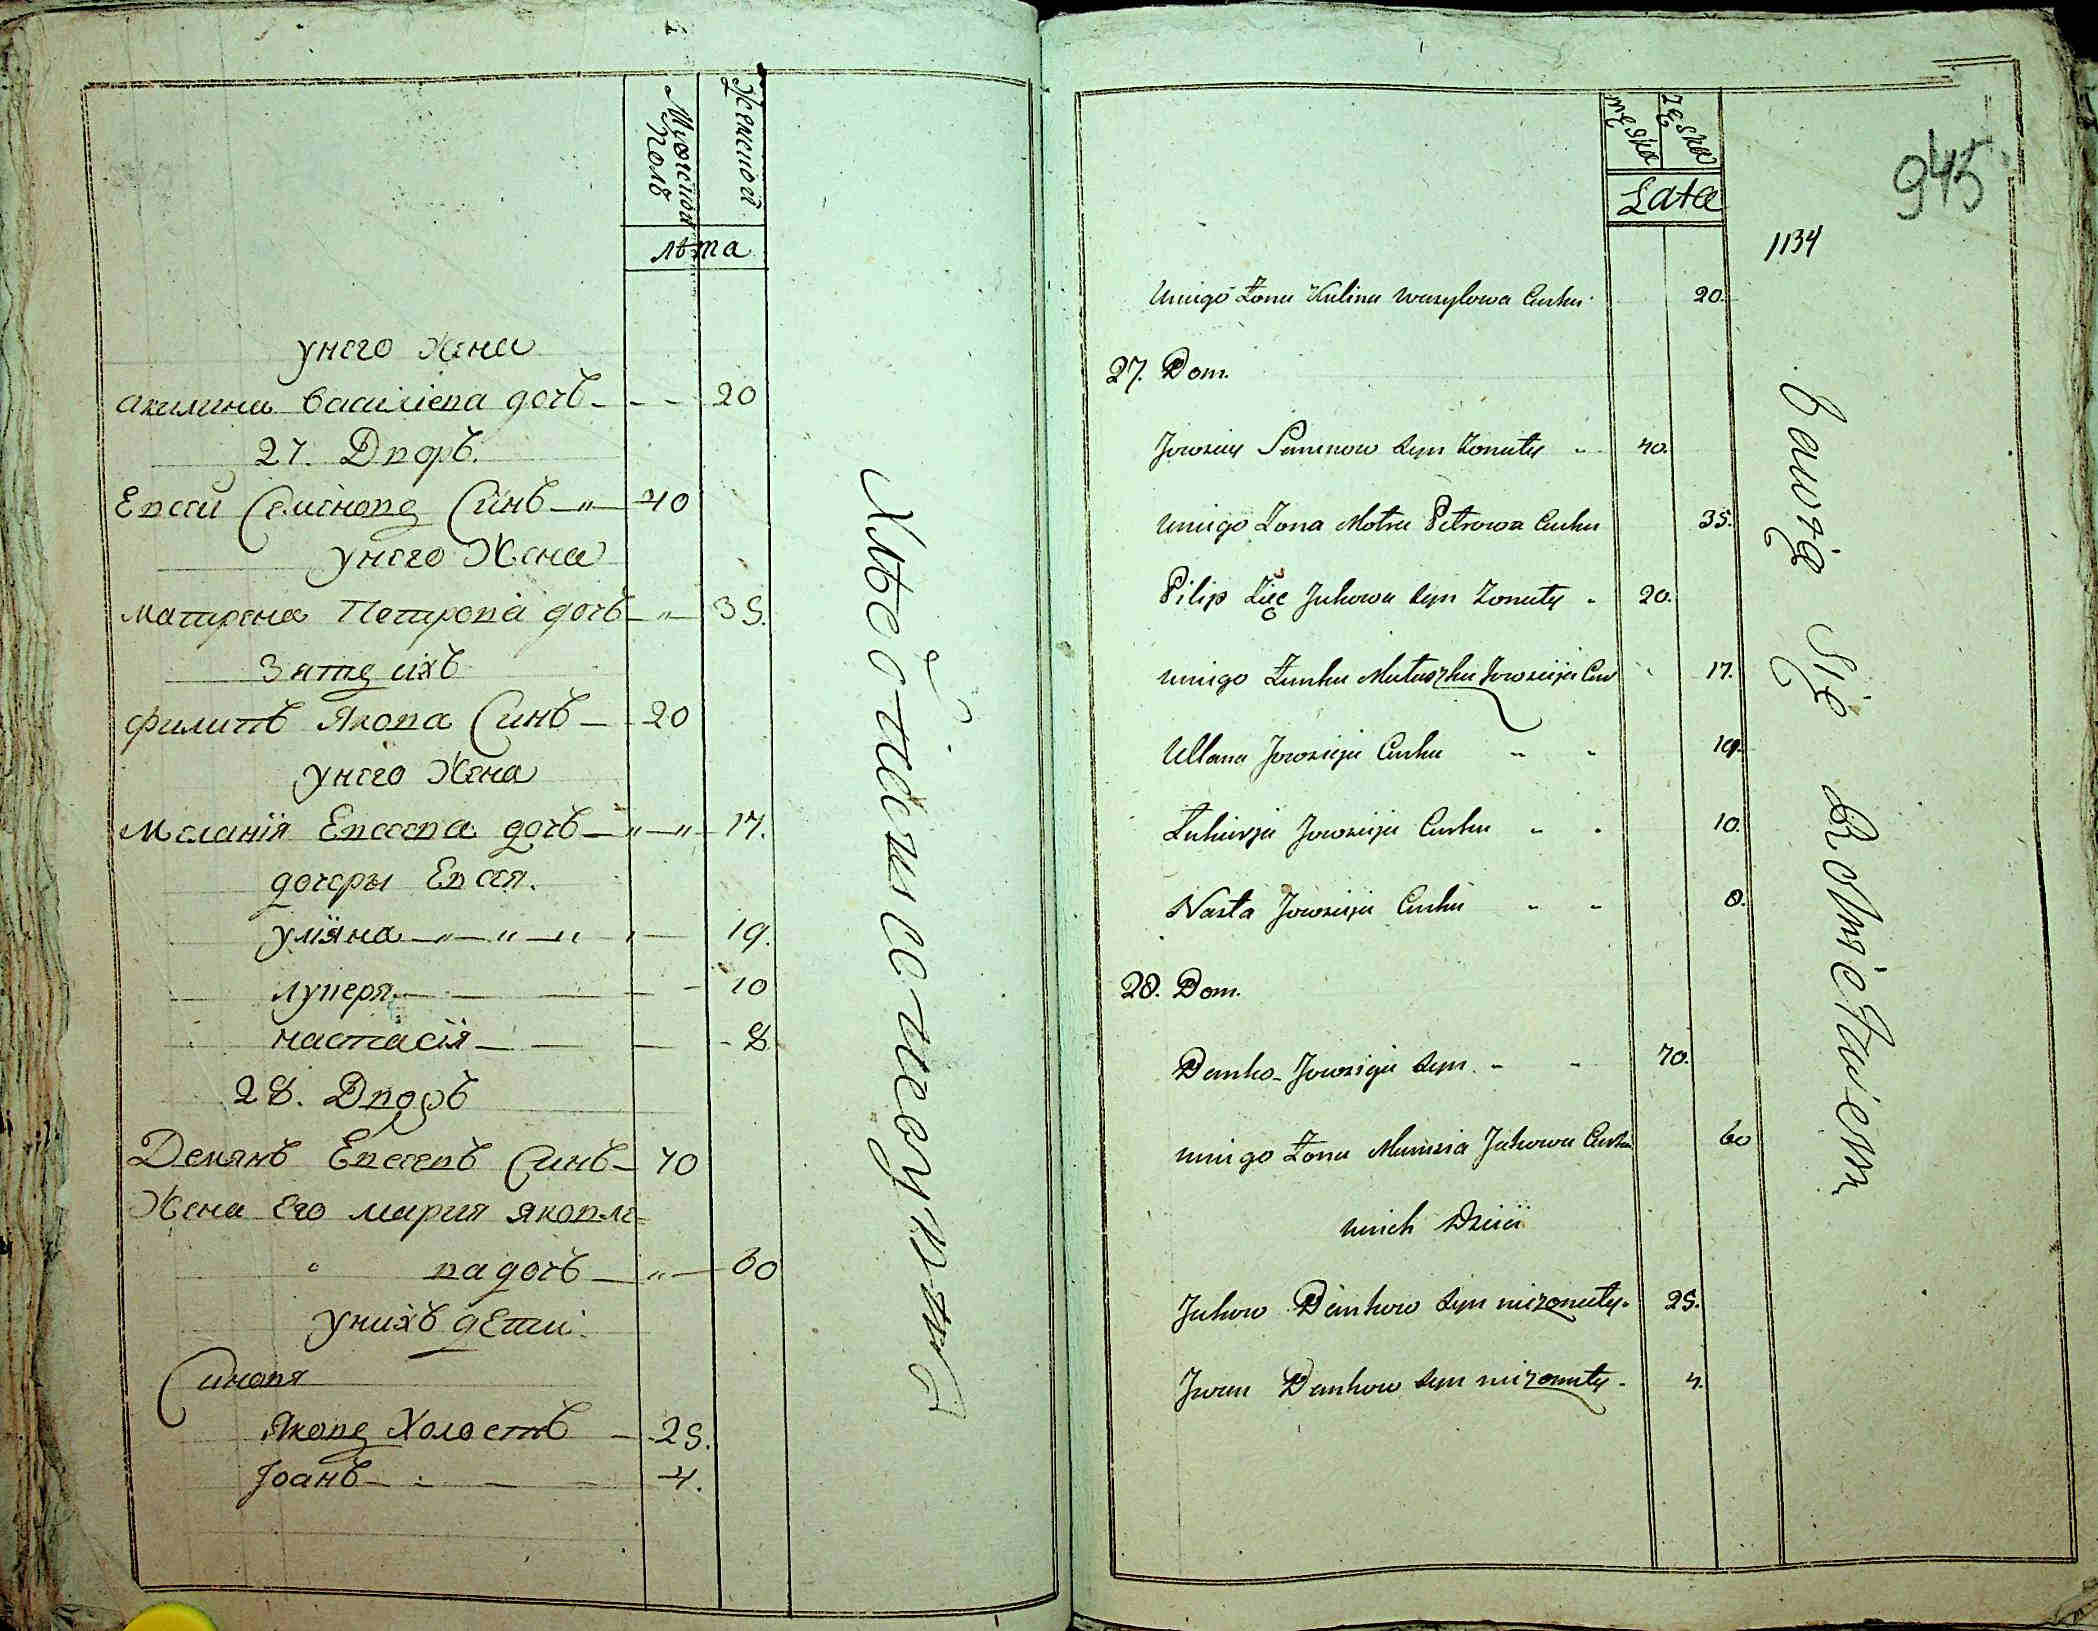 Мужской Полъ
Женской
лѣта
унего жена
акилина василіева дочъ - - - 20
27. Дворъ.
Евсей Семіновъ Синъ - " - 40
унего Жена
матрена Петрова дочъ - " - 35.
Зять ихъ
филипъ Якова Синъ - - 20
унего Жена
Меланія Евсеева дочъ - " - " - 17.
дочеры Евсея.
уліяна - " - " - " - 19.
лукеря - - - 10
настасія - - - 8
28. Дворъ
Демянъ Евсеевъ Синъ - 70
Жена Его мария яковле=
ва дочъ - " - 60
унихъ дети
Синовя
Яковъ Холостъ - 25.
Іоанъ - - - 4.
Хлѣбопашествуютъ
męska
żęska
Lata
945
1134
Uniego Żona Kulina wasylowa Curka 20.
27. Dom.
Jowsiey Semenow syn żonaty " 40.
uniego Żona Motra Petrowa Curka 35.
Pilip Zięć Jakowa syn żonaty " 20.
uniego Żonka Małaszka Jowsieja Cur 17.
Ullana Jowsieja Curka " " 19.
Łukierja Jowsieja Curka " " 10.
Nasta Jowsieja Curka " " 8.
28. Dom.
Demko Jowsieja syn " " 70.
uniego Żona Marusia Jakowa Curka 60
unich Dzieci
Jakow Demkow syn nieżonaty. 25.
Iwan Demkow syn nieżonaty - 4.
bawią Się Rolnictwem